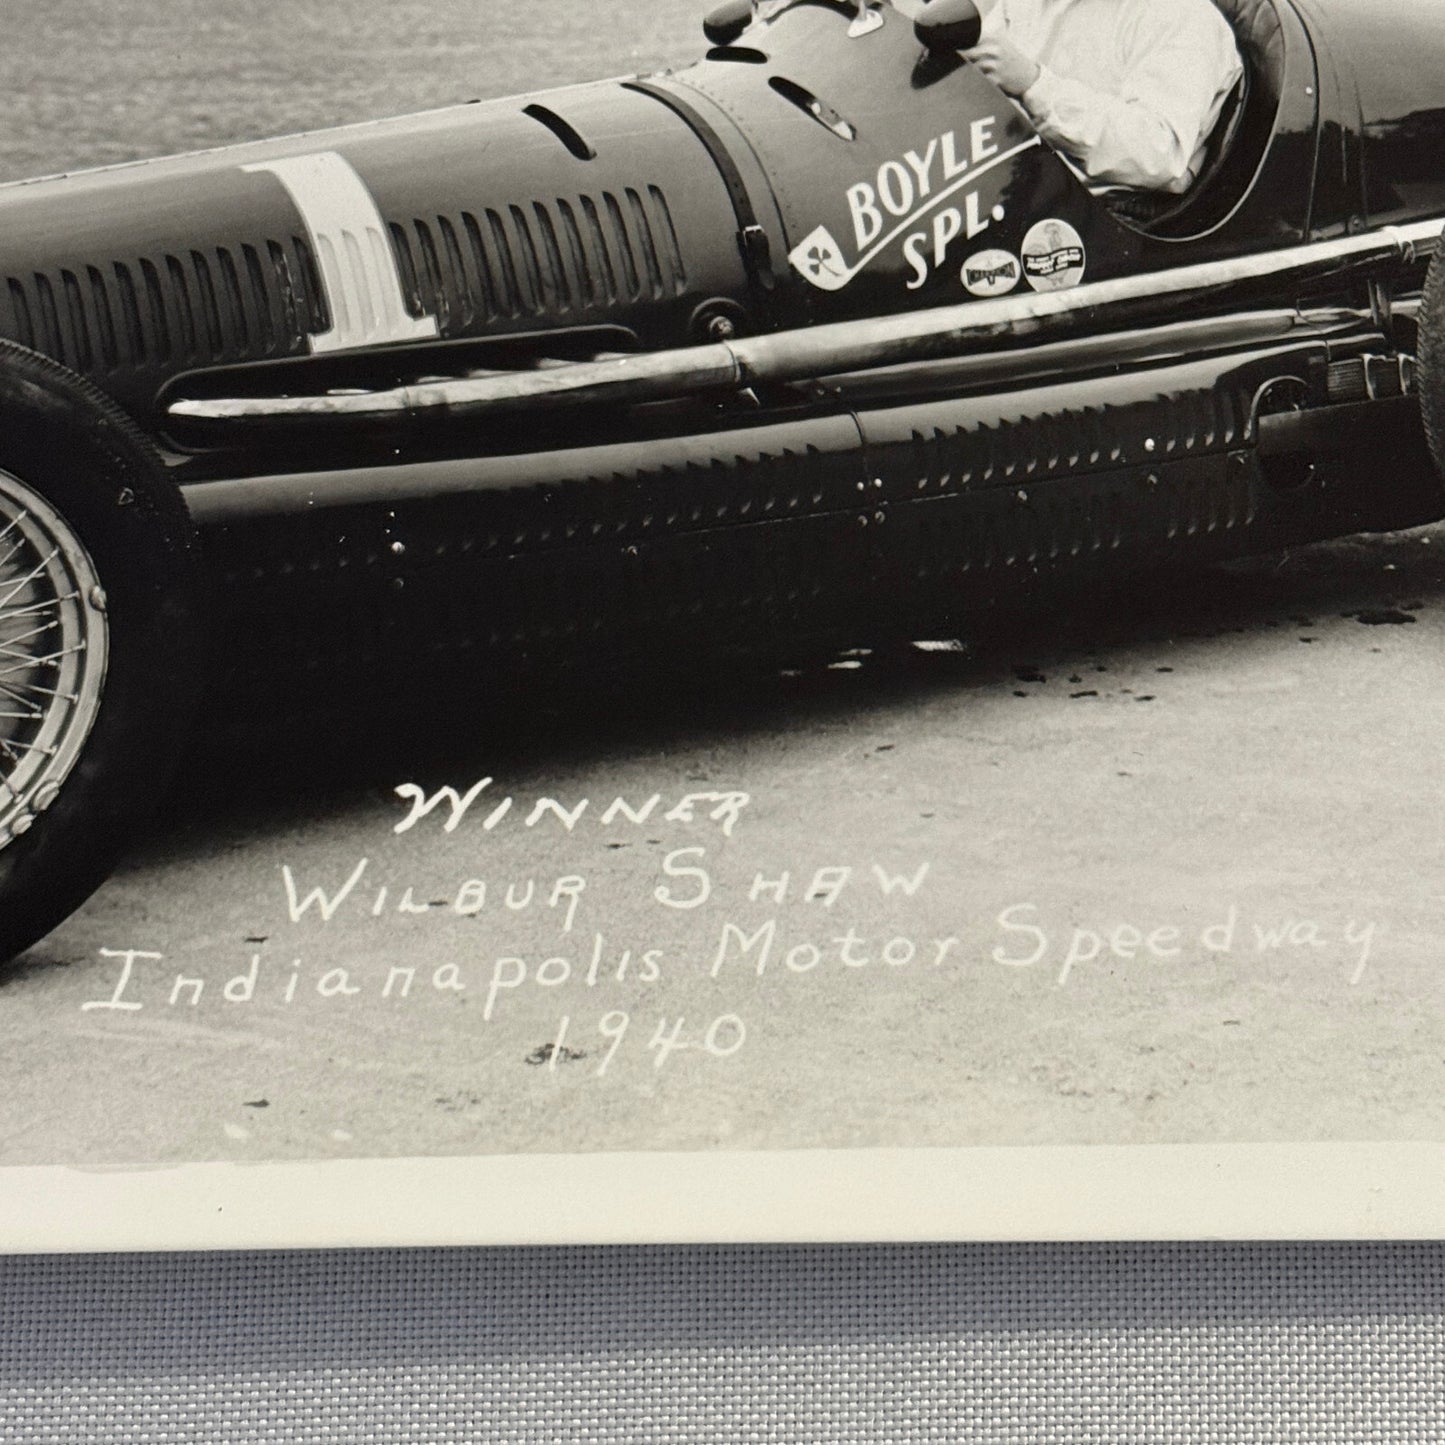 1
BOYLE
SPL.
WINNER
WILBUR SHAW
Indianapolis Motor Speedway
1940